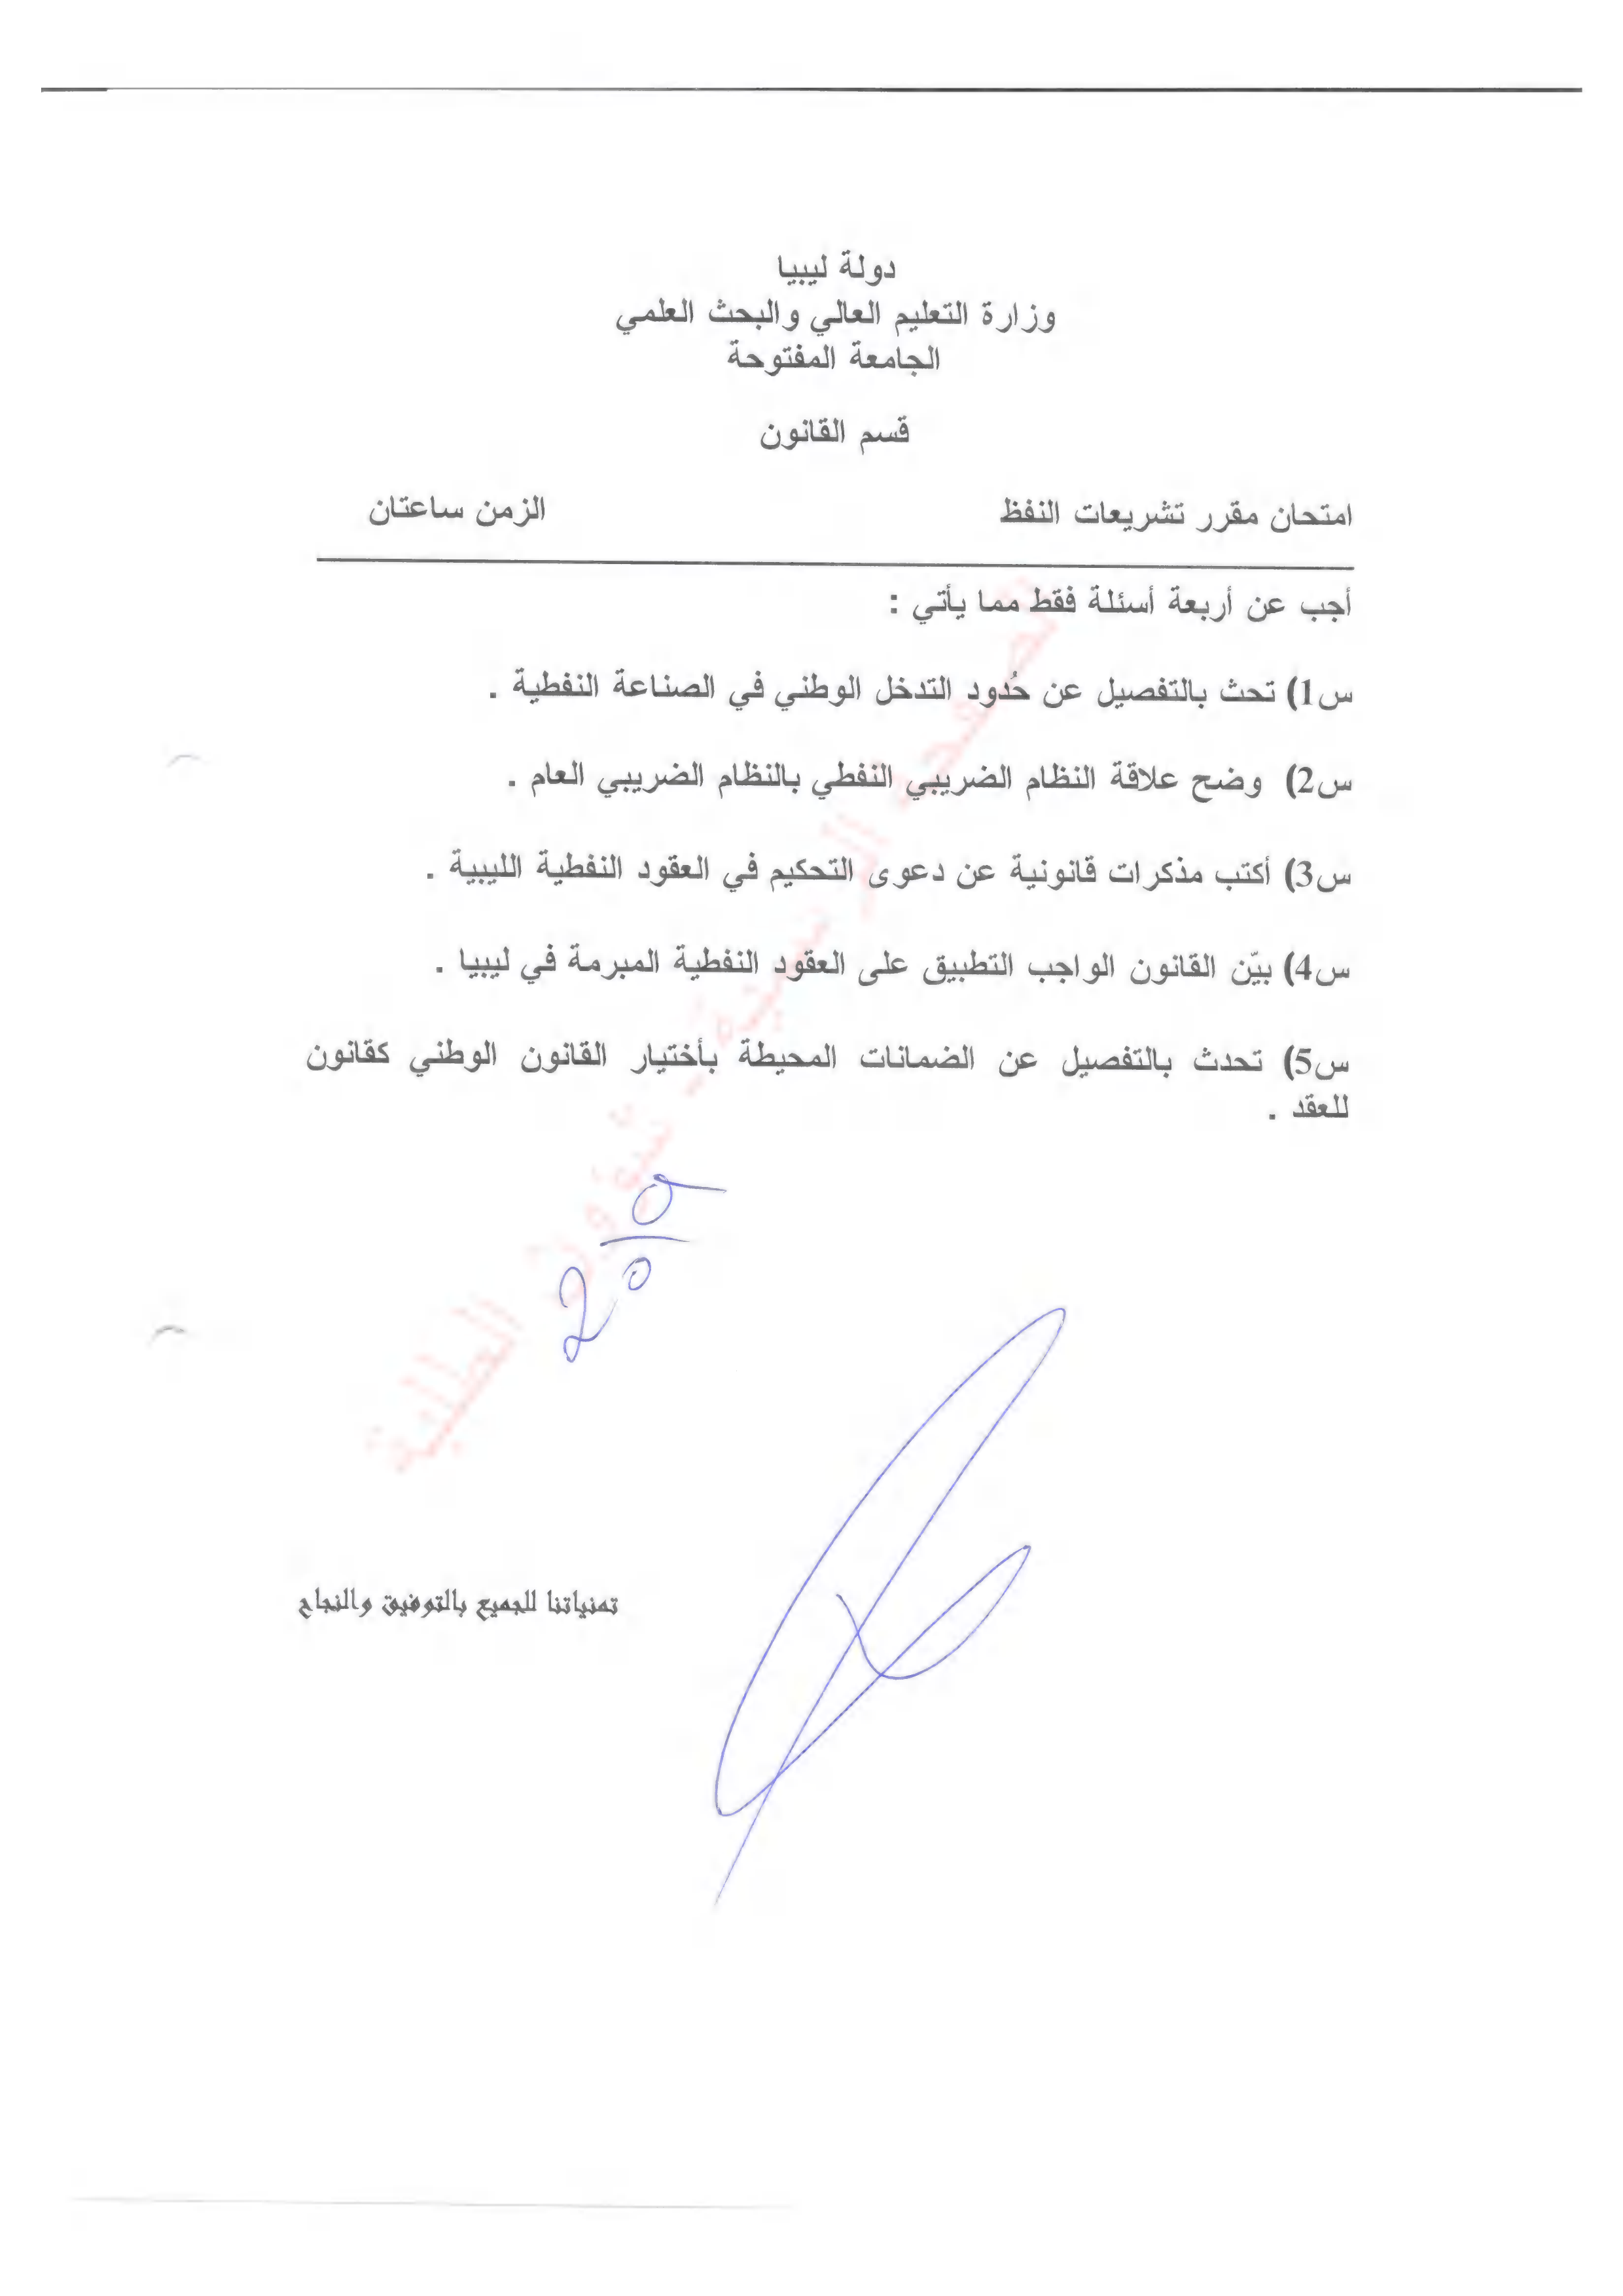 دولة ليبيا
وزارة التعليم العالي والبحث العلمي
الجامعة المفتوحة
قسم القانون
امتحان مقرر تشريعات النفظ الزمن ساعتان
أجب عن أربعة أسئلة فقط مما يأتي :
س1) تحث بالتفصيل عن حُدود التدخل الوطني في الصناعة النفطية .
س2) وضح علاقة النظام الضريبي النفطي بالنظام الضريبي العام .
س3) أكتب مذكرات قانونية عن دعوى التحكيم في العقود النفطية الليبية .
س4) بيّن القانون الواجب التطبيق على العقود النفطية المبرمة في ليبيا .
س5) تحدث بالتفصيل عن الضمانات المحيطة بأختيار القانون الوطني كقانون
للعقد .
الصفحة الرسمية - شؤون الطلبة
تمنياتنا للجميع بالتوفيق والنجاح